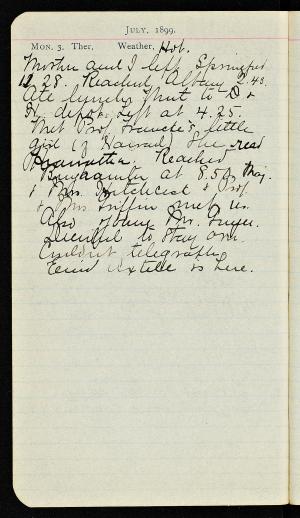 JULY, 1899.
MON. 3. Ther, Weather, Hot.
Mother and I left Springfield
12.28. Reached Albany 2.43
Ate lunch, went to D &
H. depot. Left at 4.25.
Met Prof. Francke's little
girl (of Harvard) She read
Reached
Binghamton at 8.50. Maj.
& Mrs. Hitchcock & Prof.
& Mrs Griffin met us.
Also Mr.
Decided to stay over.
Couldn't telegraph.
Enid is here.